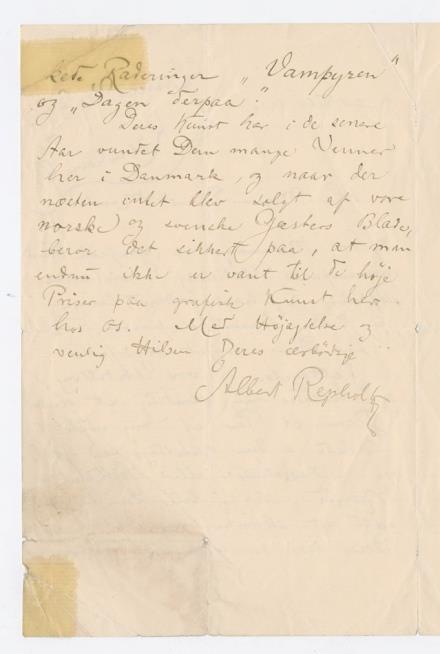 kede Raderinger „Vampyren"
og „Dagen derpaa".
Deres Kunst har i de senere
Aar vundet Dem mange Venner
her i Danmark, og naar der
næsten intet blev solgt af vore
norske og svenske Gæsters Blade,
beror det sikkert paa, at man
endnu ikke er vant til de høje
Priser paa grafisk Kunst her
hos os. Med Højagtelse og
venlig Hilsen Deres ærbødige
Albert Repholtz